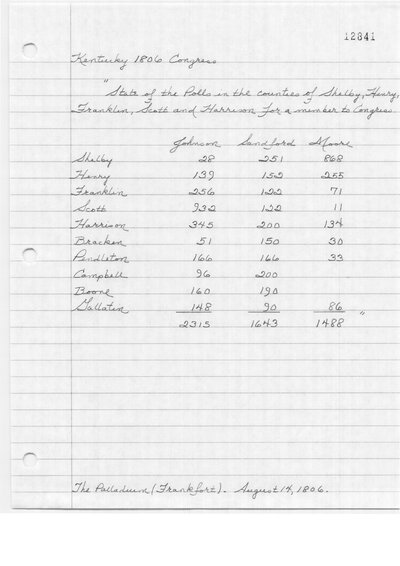 12841
Kentucky 1806 Congress
"
State of the Polls in the counties of Shelby, Henry,
Franklin, Scott and Harrison for a member to Congress.
Johnson Sandford Moore
Shelby 28 251 868
Henry 139 152 255
Franklin 256 122 71
Scott 932 122 11
Harrison 345 200 134
Bracken 51 150 30
Pendleton 166 166 33
Campbell 96 200
Boone 160 190
Gallatin 148 90 86 "
2315 1643 1488
The Palladium (Frankfort). August 14, 1806.